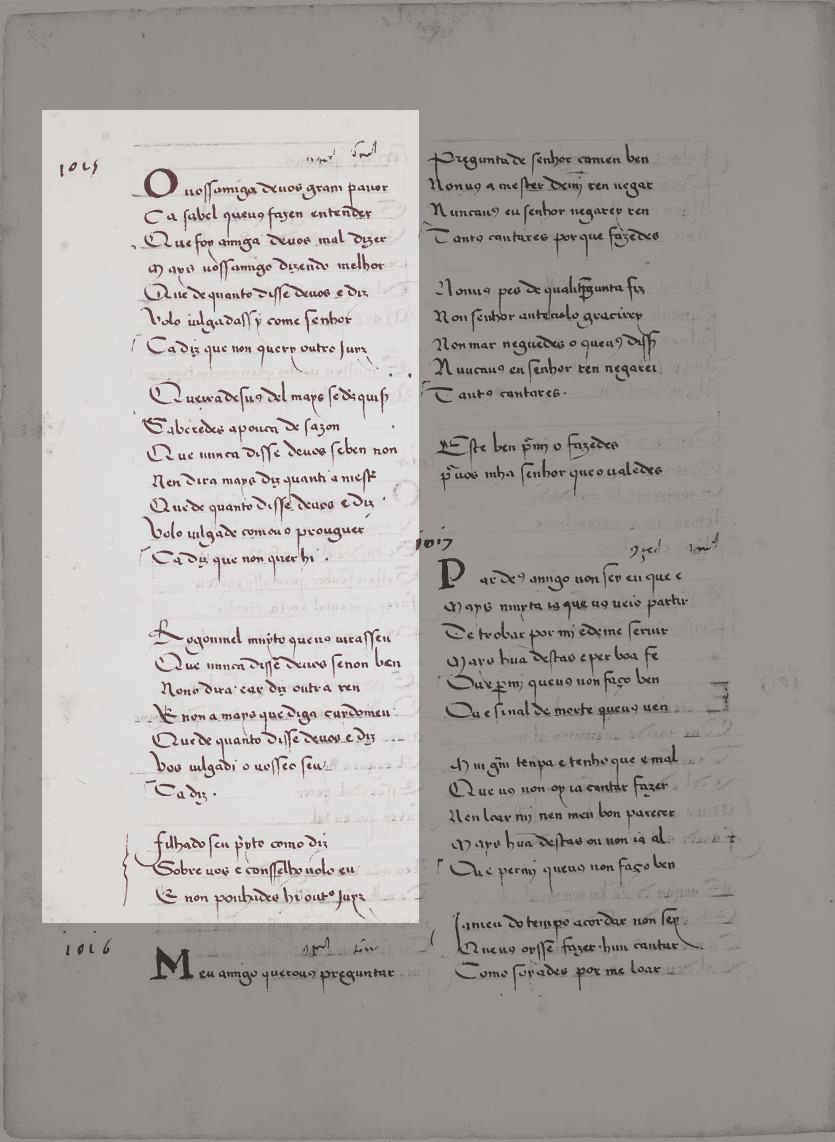 1015
O uossamiga deuos gram pauor
Ca sabel queu9 fazen entender
Que foy amiga deuos mal dizer
Mays uossamigo dizendo melhor
Que de quanto disse deuos e diz
Volo iulgadassy come senhor
Ca diz que non query outro Juyz
Queixadesu9 del mays se d9s quis
Saberedes apouca de sazon
Que nunca disse deuos se ben non
Nen dira mays diz quanti a mest
Que de quanto disse deuos e diz
Volo iulgade comou9 prouguer
Ca diz que non quer hi
Rogoumel muyto queu9 uirassen
Que nunca disse deuos senon ben
Nono dira ear diz outra ren
E non a mays que diga
Que de quanto disse deuos e diz
Vos iulgadi o uosseo seu
Ca diz
filhado seu p̃yto como diz
Sobre uos e consselho uolo eu
E non ponhades hi outo Juyz
1016
Meu amigo querou9 preguntar
Pregunta de senhor camen ben
Nonu9 a mester demj ren negar
Nuncau9 eu senhor negarey ren
Tant9 cantares por que fazedes
Non senhor antеuolo gracirey
Non mar neguedes o queu9 diss
Nuncau9 eu senhor ren negarei
Tant9 cantares
Este ben p̃mj o fazedes
p̃uos mha senhor que o ualedes
1017
Par de9 amigo non sey eu que e
Mays muyta ia que u9 ueio partir
De trobar por mj edeme seruir
Mays hũa destas e per boa fe
Ou e p mj queu9 non faço ben
Ou e sinal de morte queu9 uen
Mui g̃m tenpa e tenho que e mal
Que u9 non oy ia cantar fazer
Nen loar mj nen meu bon parecer
Mays hũa destas ou non ia al
Ou e permj queu9 non faço ben
Ja meu do tempo acordar non sey
Que u9 oysse fazer hun cantar
Como soyades por me loar